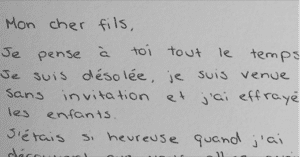 Mon cher fils,
Je pense à toi tout le temps
Je suis désolée, je suis venue
sans invitation et j'ai effrayé
les enfants.
J'étais si heureuse quand j'ai